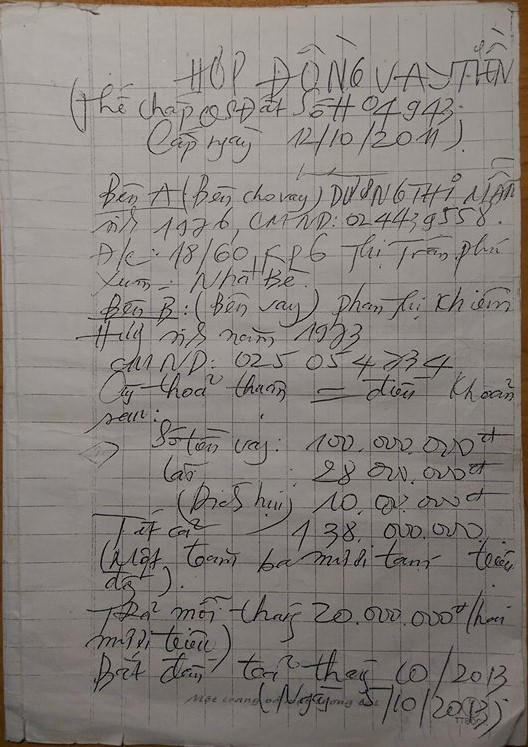 HỢP ĐỒNG VAY TIỀN
(Thế chấp QSD Đất Số H 04943
Cấp ngày 12/10/2011)
Bên A (Bên cho vay) DƯƠNG THỊ MẬN
sinh 1976, CMND: 024439558.
Đ/c: 18/60, KP6 Thị Trấn Phú
Xuân - Nhà Bè
Bên B: (Bên vay) Phan Thị Khiêm
sinh năm 1973
CMND: 025 054 734
Cùng thoả thuận = điều khoản
sau:
Số tiền vay: 100.000.000đ
Lãi : 28 000.000đ
(Dịch vụ) 10.000.000đ
Tất cả 138.000.000
(Một trăm ba mươi tám triệu
đg).
Trả mỗi tháng 20.000.000đ/hai
mươi triệu)
Bắt đầu trả tháng 10/2013
(Ngày 5/10/2013)